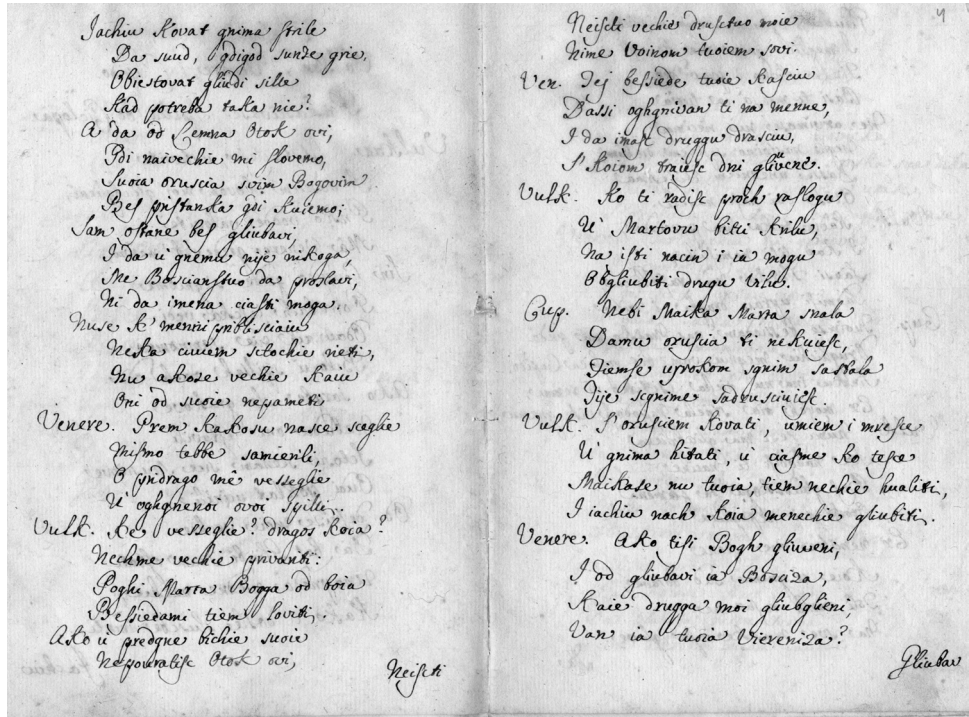 Iachiu Kovat gnima strile
Da suud, gdigod sunze grie,
Obiestovat gliudi sille
Kad potreba taka nie?
A da od Lemna Otok ovi,
Gdi naivechie mi slovemo,
Suoia oruscia svim Bogovim
Bes pristanka gdi kuiemo;
Sam ostane bes gliubavi,
I da u gnemu nije nikoga,
Me Boscianstuo da proslavi,
Ni da imena ciasti moga.
Nuse k' menni priblisciaiu
Neka ciuiem sctochie rieti,
Nu akose vechie kaiu
Oni od suoie nepameti
Venere. Prem kakosu nasce sceglie
Mismo tebbe samierili,
O pridrago mê vesseglie
U' oghgnenoi ovoi spilli.
Vulk. Ke vesseglie? dragos koia?
Nechme vechie privariti:
Poghi Marta Bogga od boia
Bessiedami tiem loviti,
Ako u' predgne bichie suoie
Nepouratisc Otok ovi,
Neiscti
4
Neiscti vechie drusctuo moie
Nime Voinom tuoiem sovi.
Ven. Iej bessiede tuoie kasciu
Dassi oghgnivan ti na menne,
I da imasc druggu drasciu,
S' koiom traiesc dni gliuvenê.
Vulk. Ko ti radisc proch raslogu
U' Martovu bitti krilu,
Na isti nacin i ia mogu
Obgliubiti drugu Vilu.
Cup. Nebi Maika Marta snala
Damu oruscia ti nekuiesc,
Tiemse usrokom sgnim sastala
Tije scgnime sadrusciuiesc.
Vulk. S' orusciem kovati, umiem i mresce
U' gnima hitati, u' ciasme ko tesce
Maikase nu tuoia, tiem nechie hualiti,
I iachiu nach koia menechie gliubiti.
Venere. Ako tisi Bogh gliuveni,
I od gliubavi ia Bosciza,
Kaie drugga moi gliubglieni
Van ia tuoia Viereniza?
Gliubav